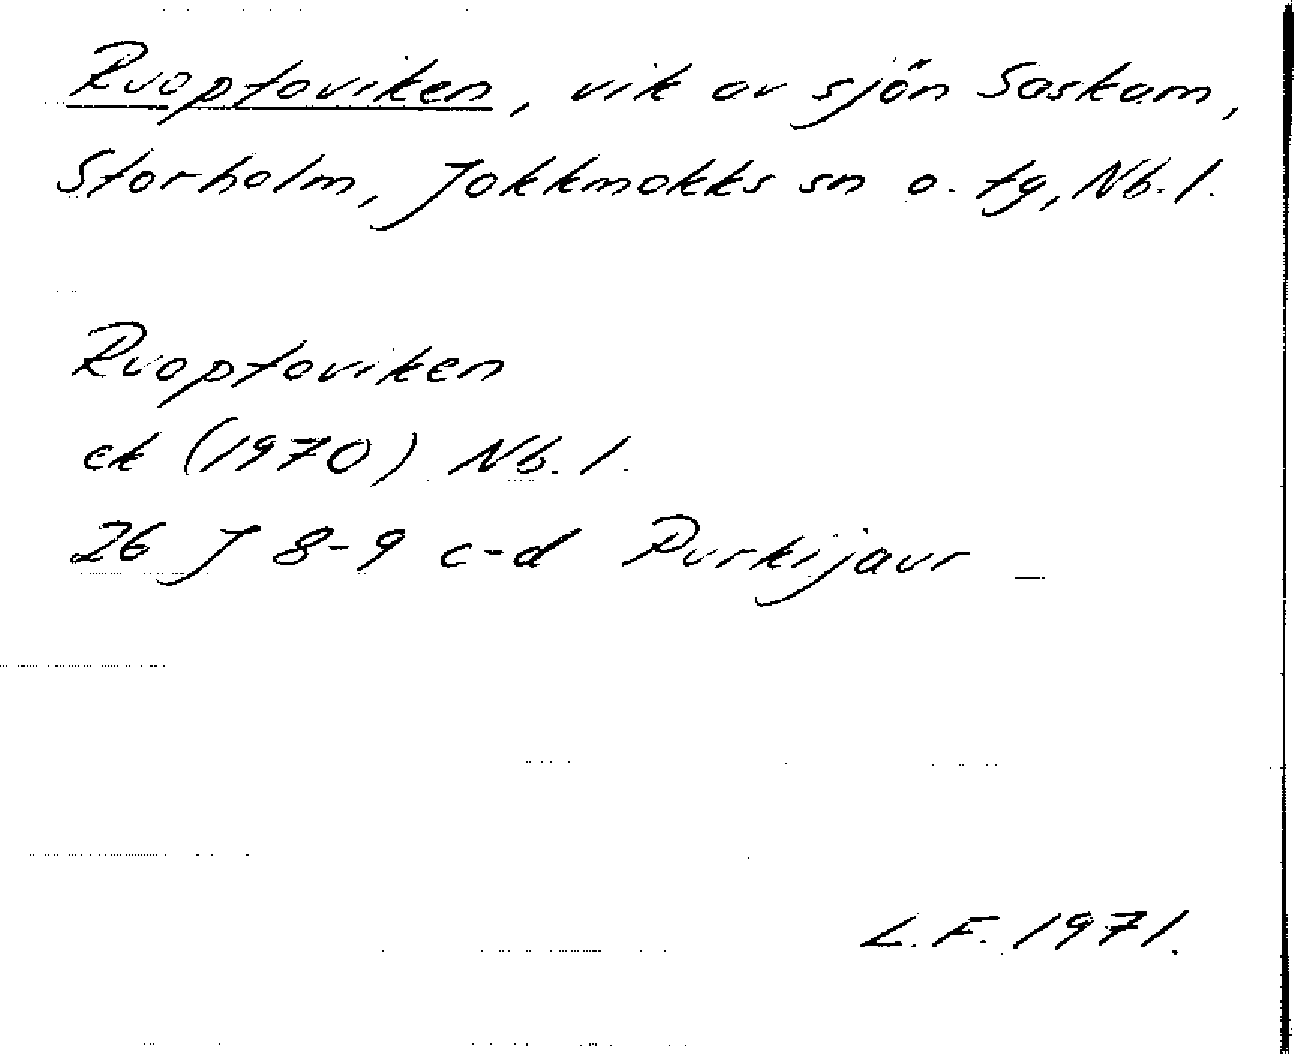 Ruoptaviken, vik av sjön Saskam,
Storholm, Jokkmokks sn o. tg, Nb. l.
Ruoptaviken
ek (1970) Nb. l.
26 J 8-9 c-d Purkijaur
L.F. 1971.